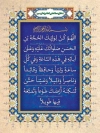 اللهم كن لوليك الحجة بن
الحسن صلواتك عليه وعلى
آبائه في هذه الساعة وفي كل
ساعة وليا وحافظا وقائدا
وناصرا ودليلا وعينا حتى
تسكنه أرضك طوعا وتمتعه
فيها طويلا